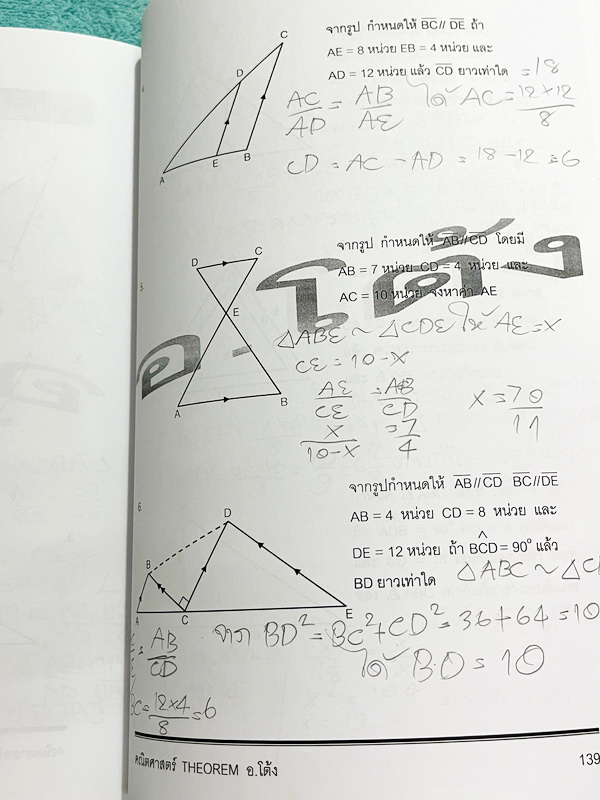 จากรูป กำหนดให้ BC // DE ถ้า
AE = 8 หน่วย EB = 4 หน่วย และ
AD = 12 หน่วย แล้ว CD ยาวเท่าใด = 18
4.
C
D
E
B
A
AC/AD = AB/AE ได้ AC = 12×12/8
CD = AC - AD = 18 - 12 = 6
จากรูป กำหนดให้ AB//CD โดยมี
AB = 7 หน่วย CD = 4 หน่วย และ
AC = 10 หน่วย จงหาค่า AE
5.
D
C
E
A
B
อ. โต้ง
△ABE ~ △CDE ให้ AE = x
CE = 10-x
AE/CE = AB/CD
x/10-x = 7/4
x = 70/11
จากรูปกำหนดให้ AB//CD BC//DE
AB = 4 หน่วย CD = 8 หน่วย และ
DE = 12 หน่วย ถ้า BĈD = 90° แล้ว
BD ยาวเท่าใด △ABC ~ △C
6.
D
B
A
C
E
AB/CD
จาก BD² = BC² + CD² = 36+64 = 10
ได้ BD = 10
BC = 12×4/8 = 6
คณิตศาสตร์ THEOREM อ.โต้ง
139